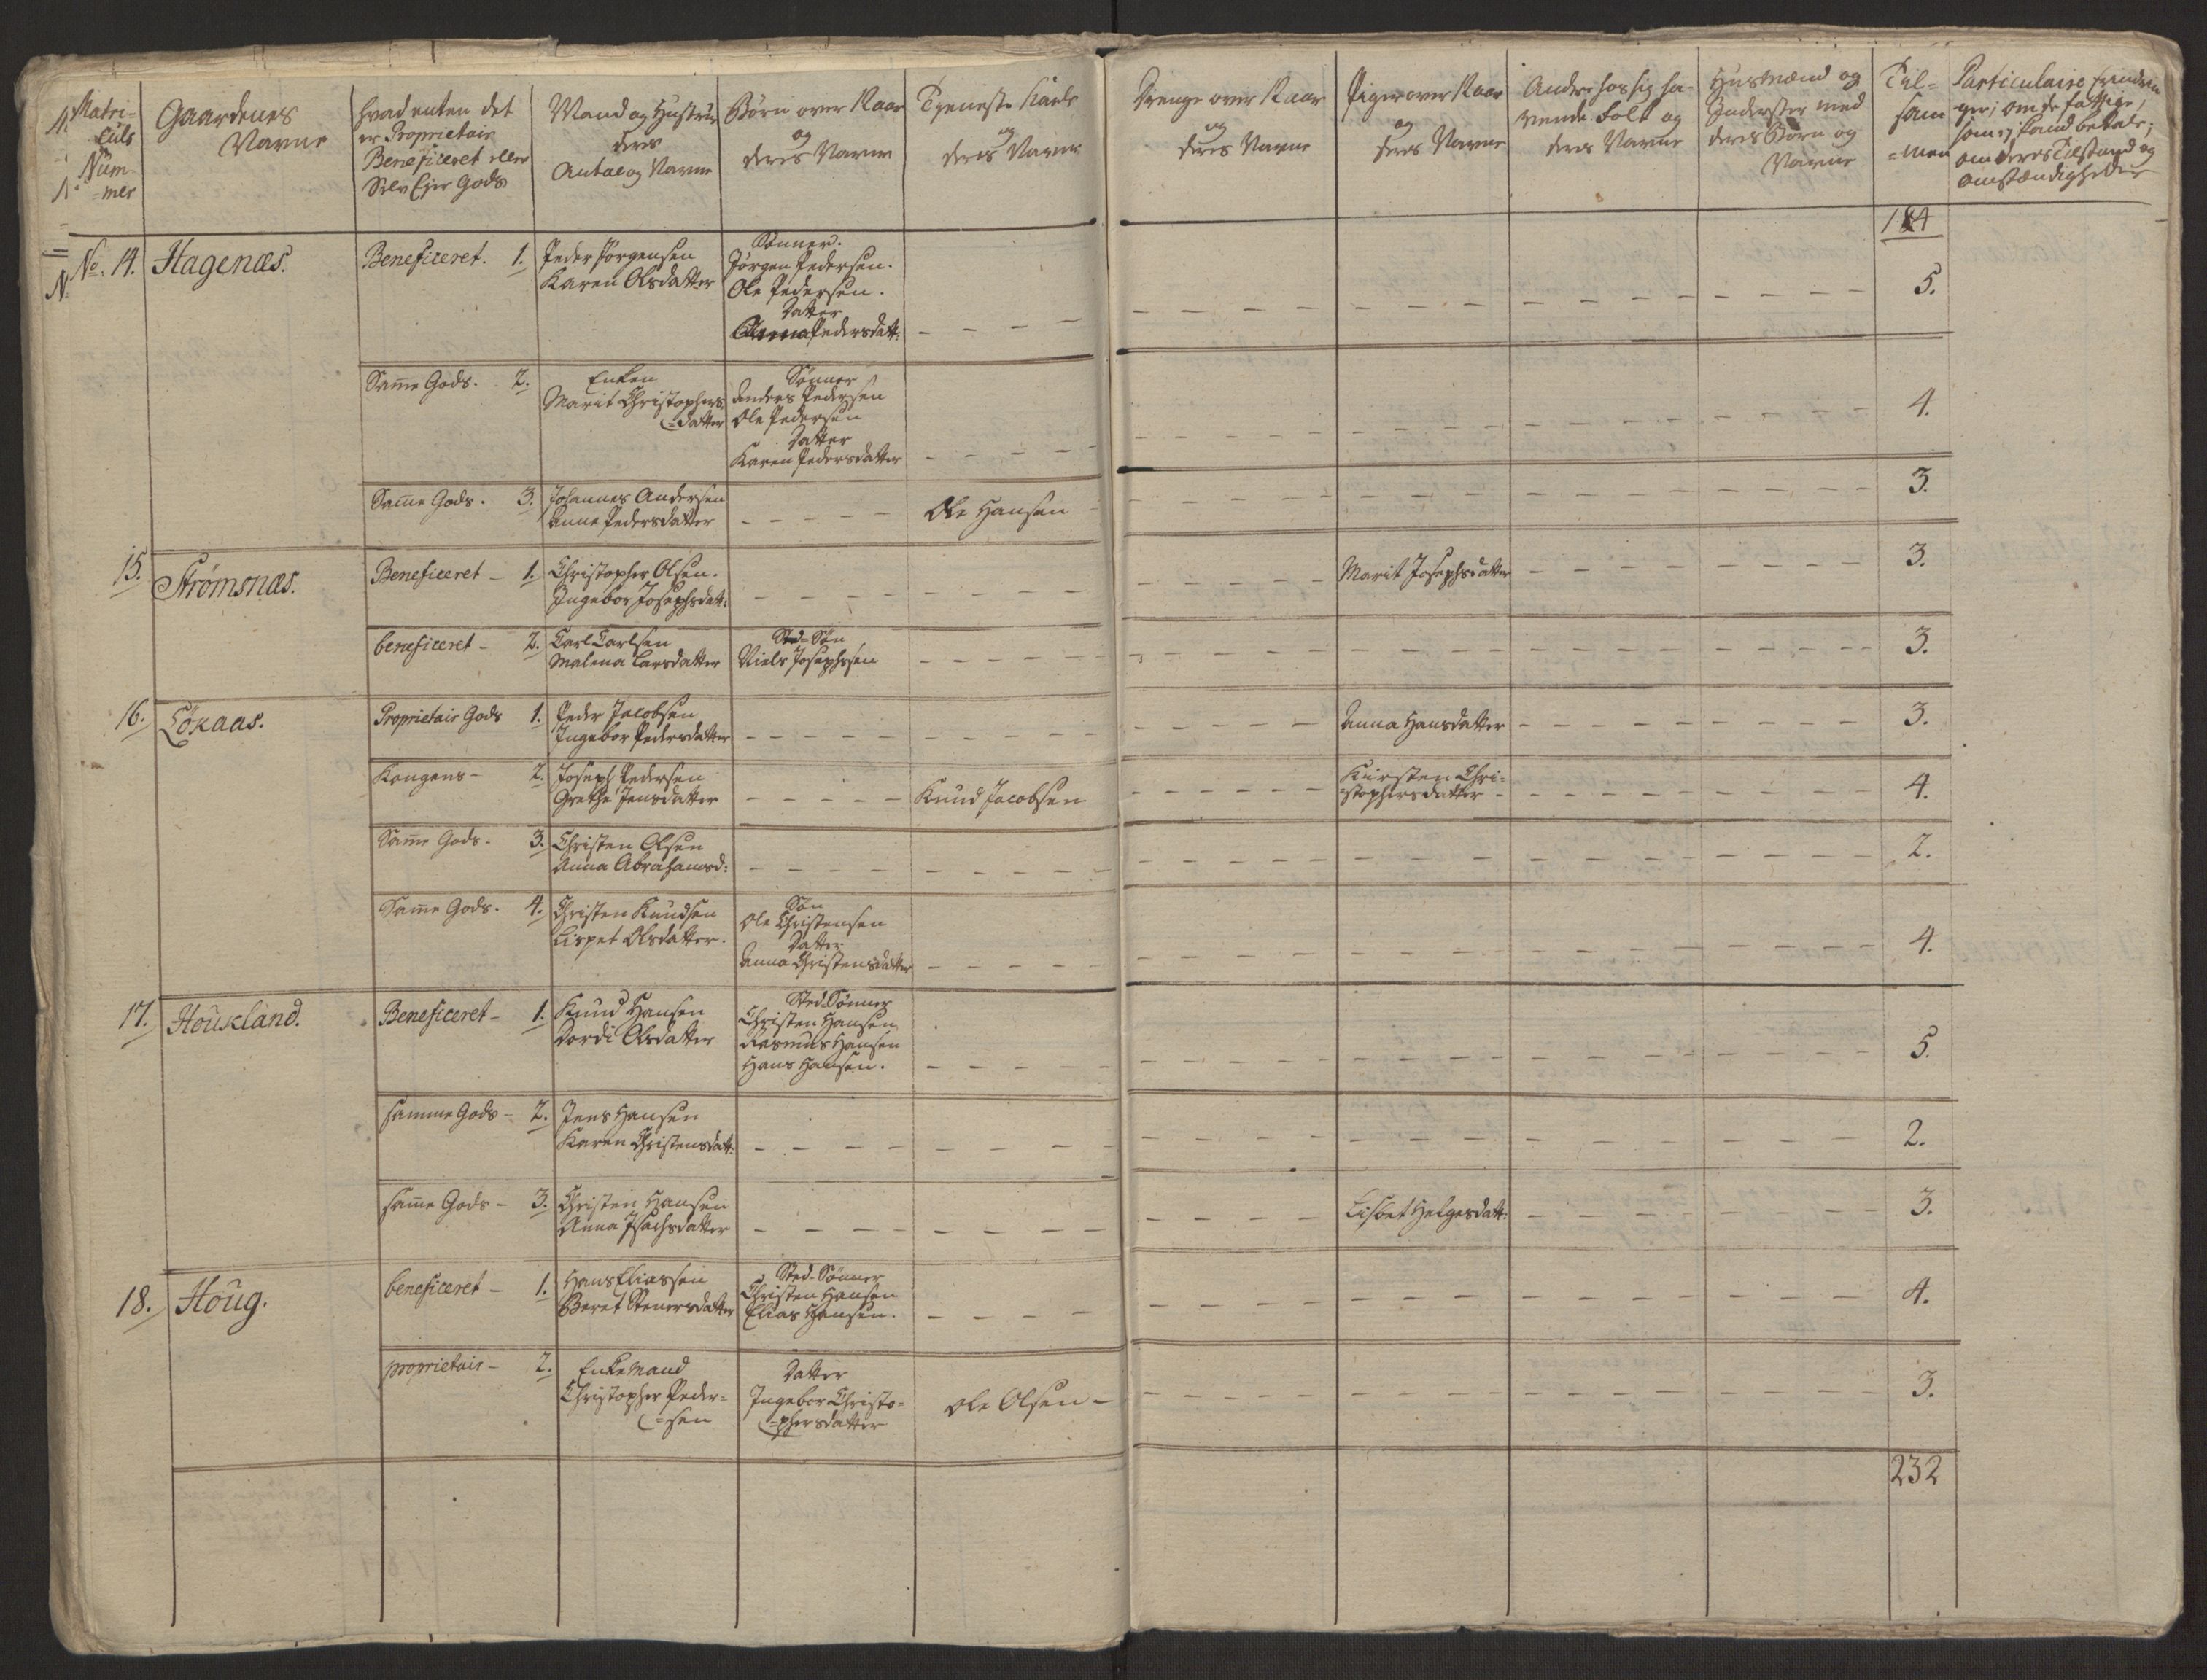 Matri-
culs
Num
-mer
Gaardenes
Navne
hvad enten det
er Proprietair
Beneficeret eller
Selv Ejer Gods
Mand og Hustrue
deres
Antal og Navne
Børn over Aar
og
deres Navne
Tjeneste Karle
og
deres Navne
Drenge over Aar
og
deres Navne
Piger over Aar
og
deres Navne
Andre hos sig ha-
vende Folk og
deres Navne
Husmænd og
Inderster med
deres Børn og
Navne
Til-
sam
-men
Particulaire Erindrin
ger; om de fattige,
som ej kand betale;
om deres Tilstand og
omstændigheder
184
No. 14. Hagenæs. Beneficeret. 1. Peder Jørgensen
Karen Olsdatter
Sønner.
Jørgen Pedersen.
Ole Pedersen.
Datter
Anna Pedersdatt:
5.
Samme Gods. 2. Enken
Marit Christophers
-datter
Sønner
Anders Pedersen
Ole Pedersen
Datter
Karen Pedersdatter
4.
Samme Gods. 3. Johannes Andersen
Anne Pedersdatter
Ole Hansen
3.
15. Strømsnæs. Beneficeret - 1. Christopher Olsen.
Ingebor Josephsdat:
Marit Josephsdatter
3.
beneficeret - 2. Carl Carlsen
Malena Larsdatter
Sted-Søn
Niels Josephsen
3.
16. Løkaas. Proprietair Gods 1. Peder Jacobsen
Ingebor Pedersdatter
Anna Hansdatter
3.
Kongens - 2. Joseph Pedersen
Grethe Jensdatter
Knud Jacobsen
Kirsten Chri-
-stophersdatter -
4.
Samme Gods. 3. Christen Olsen
Anna Abrahamsd:
2.
Samme Gods. 4. Christen Knudsen
Lispet Olsdatter.
Søn
Ole Christensen
Datter
Anna Christensdatter
4.
17. Houkland. Beneficeret - 1. Knud Hansen
Dordi Olsdatter
Sted-Sønner
Christen Hansen
Rasmus Hansen
Hans Hansen.
5.
samme Gods - 2. Jens Hansen
Karen Christensdatt:
2.
samme Gods - 3. Christen Hansen
Anna Isachsdatter
Lisbet Helgesdatt:
3.
18. Houg. beneficeret - 1. Hans Eliassen
Beret Stenersdatter
Sted-Sønner
Christen Hansen
Elias Hansen.
4.
proprietair - 2. Enkemand
Christopher Peder-
-sen
Datter
Ingebor Christo-
-phersdatter
Ole Olsen -
3.
232